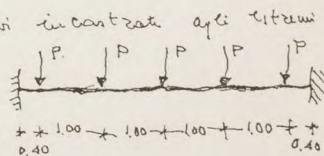 incastrati agli estremi
P. P P P P
1.00 1.00 1.00 1.00
0.40 0.40